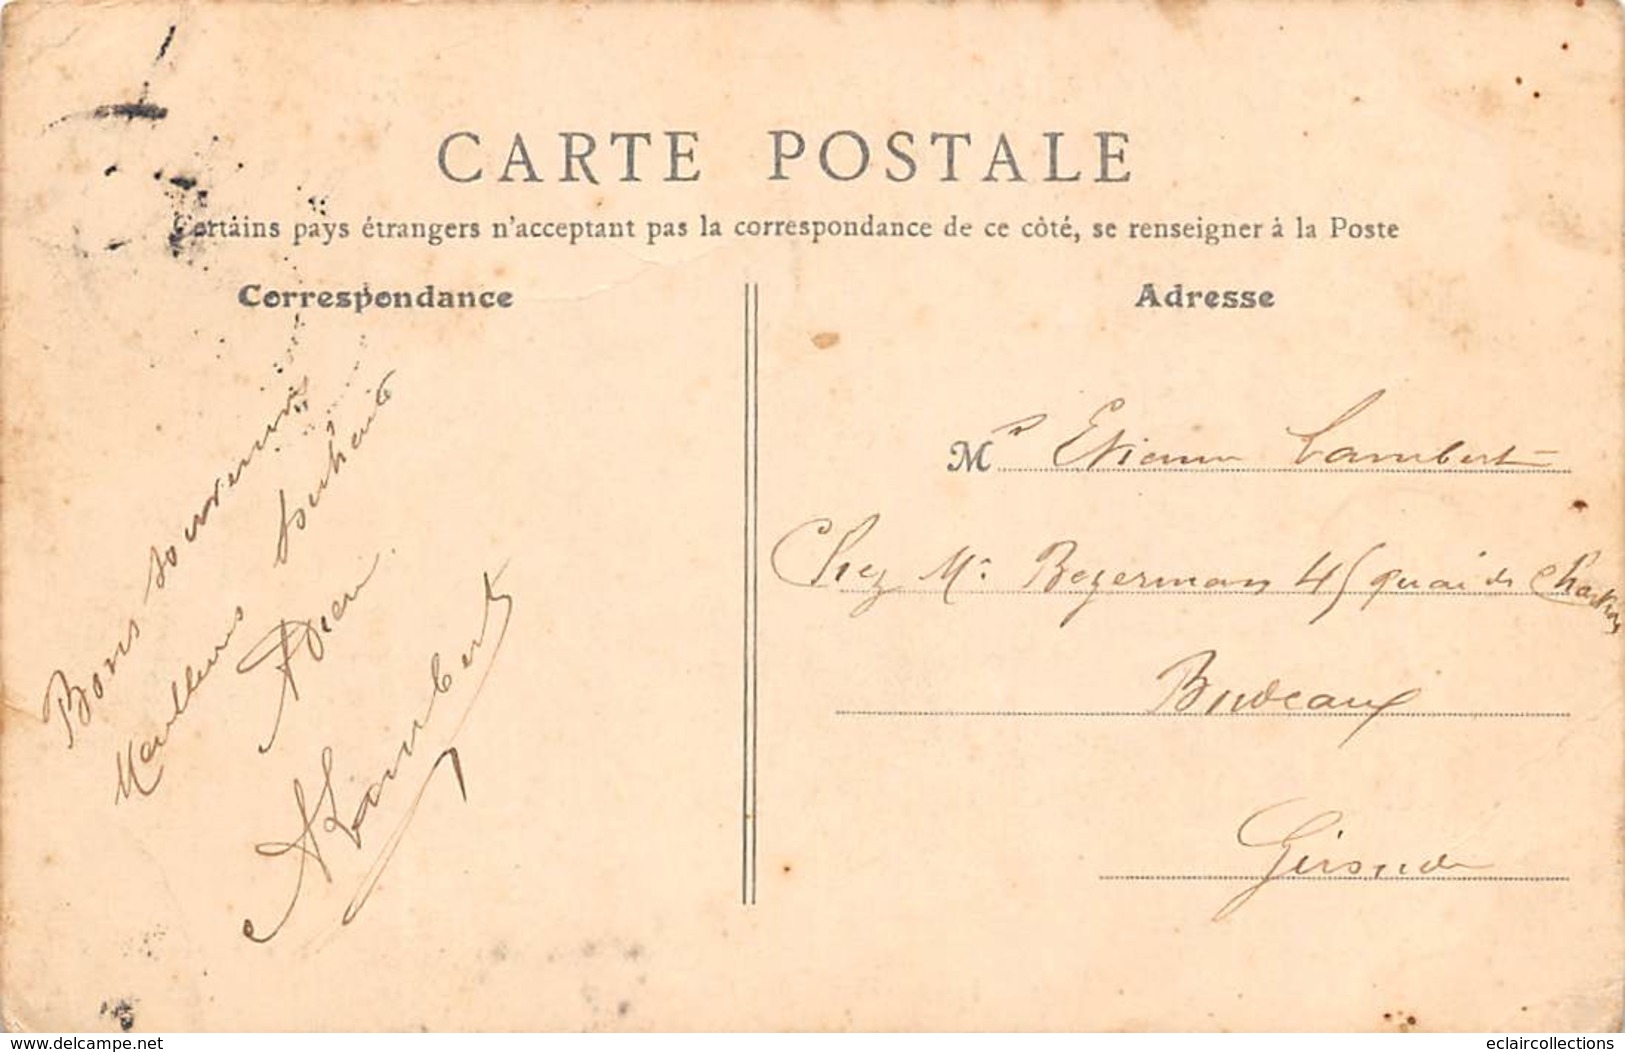 CARTE POSTALE
Certains pays étrangers n'acceptant pas la correspondance de ce côté, se renseigner à la Poste
Correspondance
Adresse
Bons souvenirs
Meilleurs souhaits
Adieu
A Lambert
Mr Etienne Lambert
Chez Mr Bezerman 45 quai des Chartrons
Bordeaux
Gironde
www.delcampe.net
eclaircollections